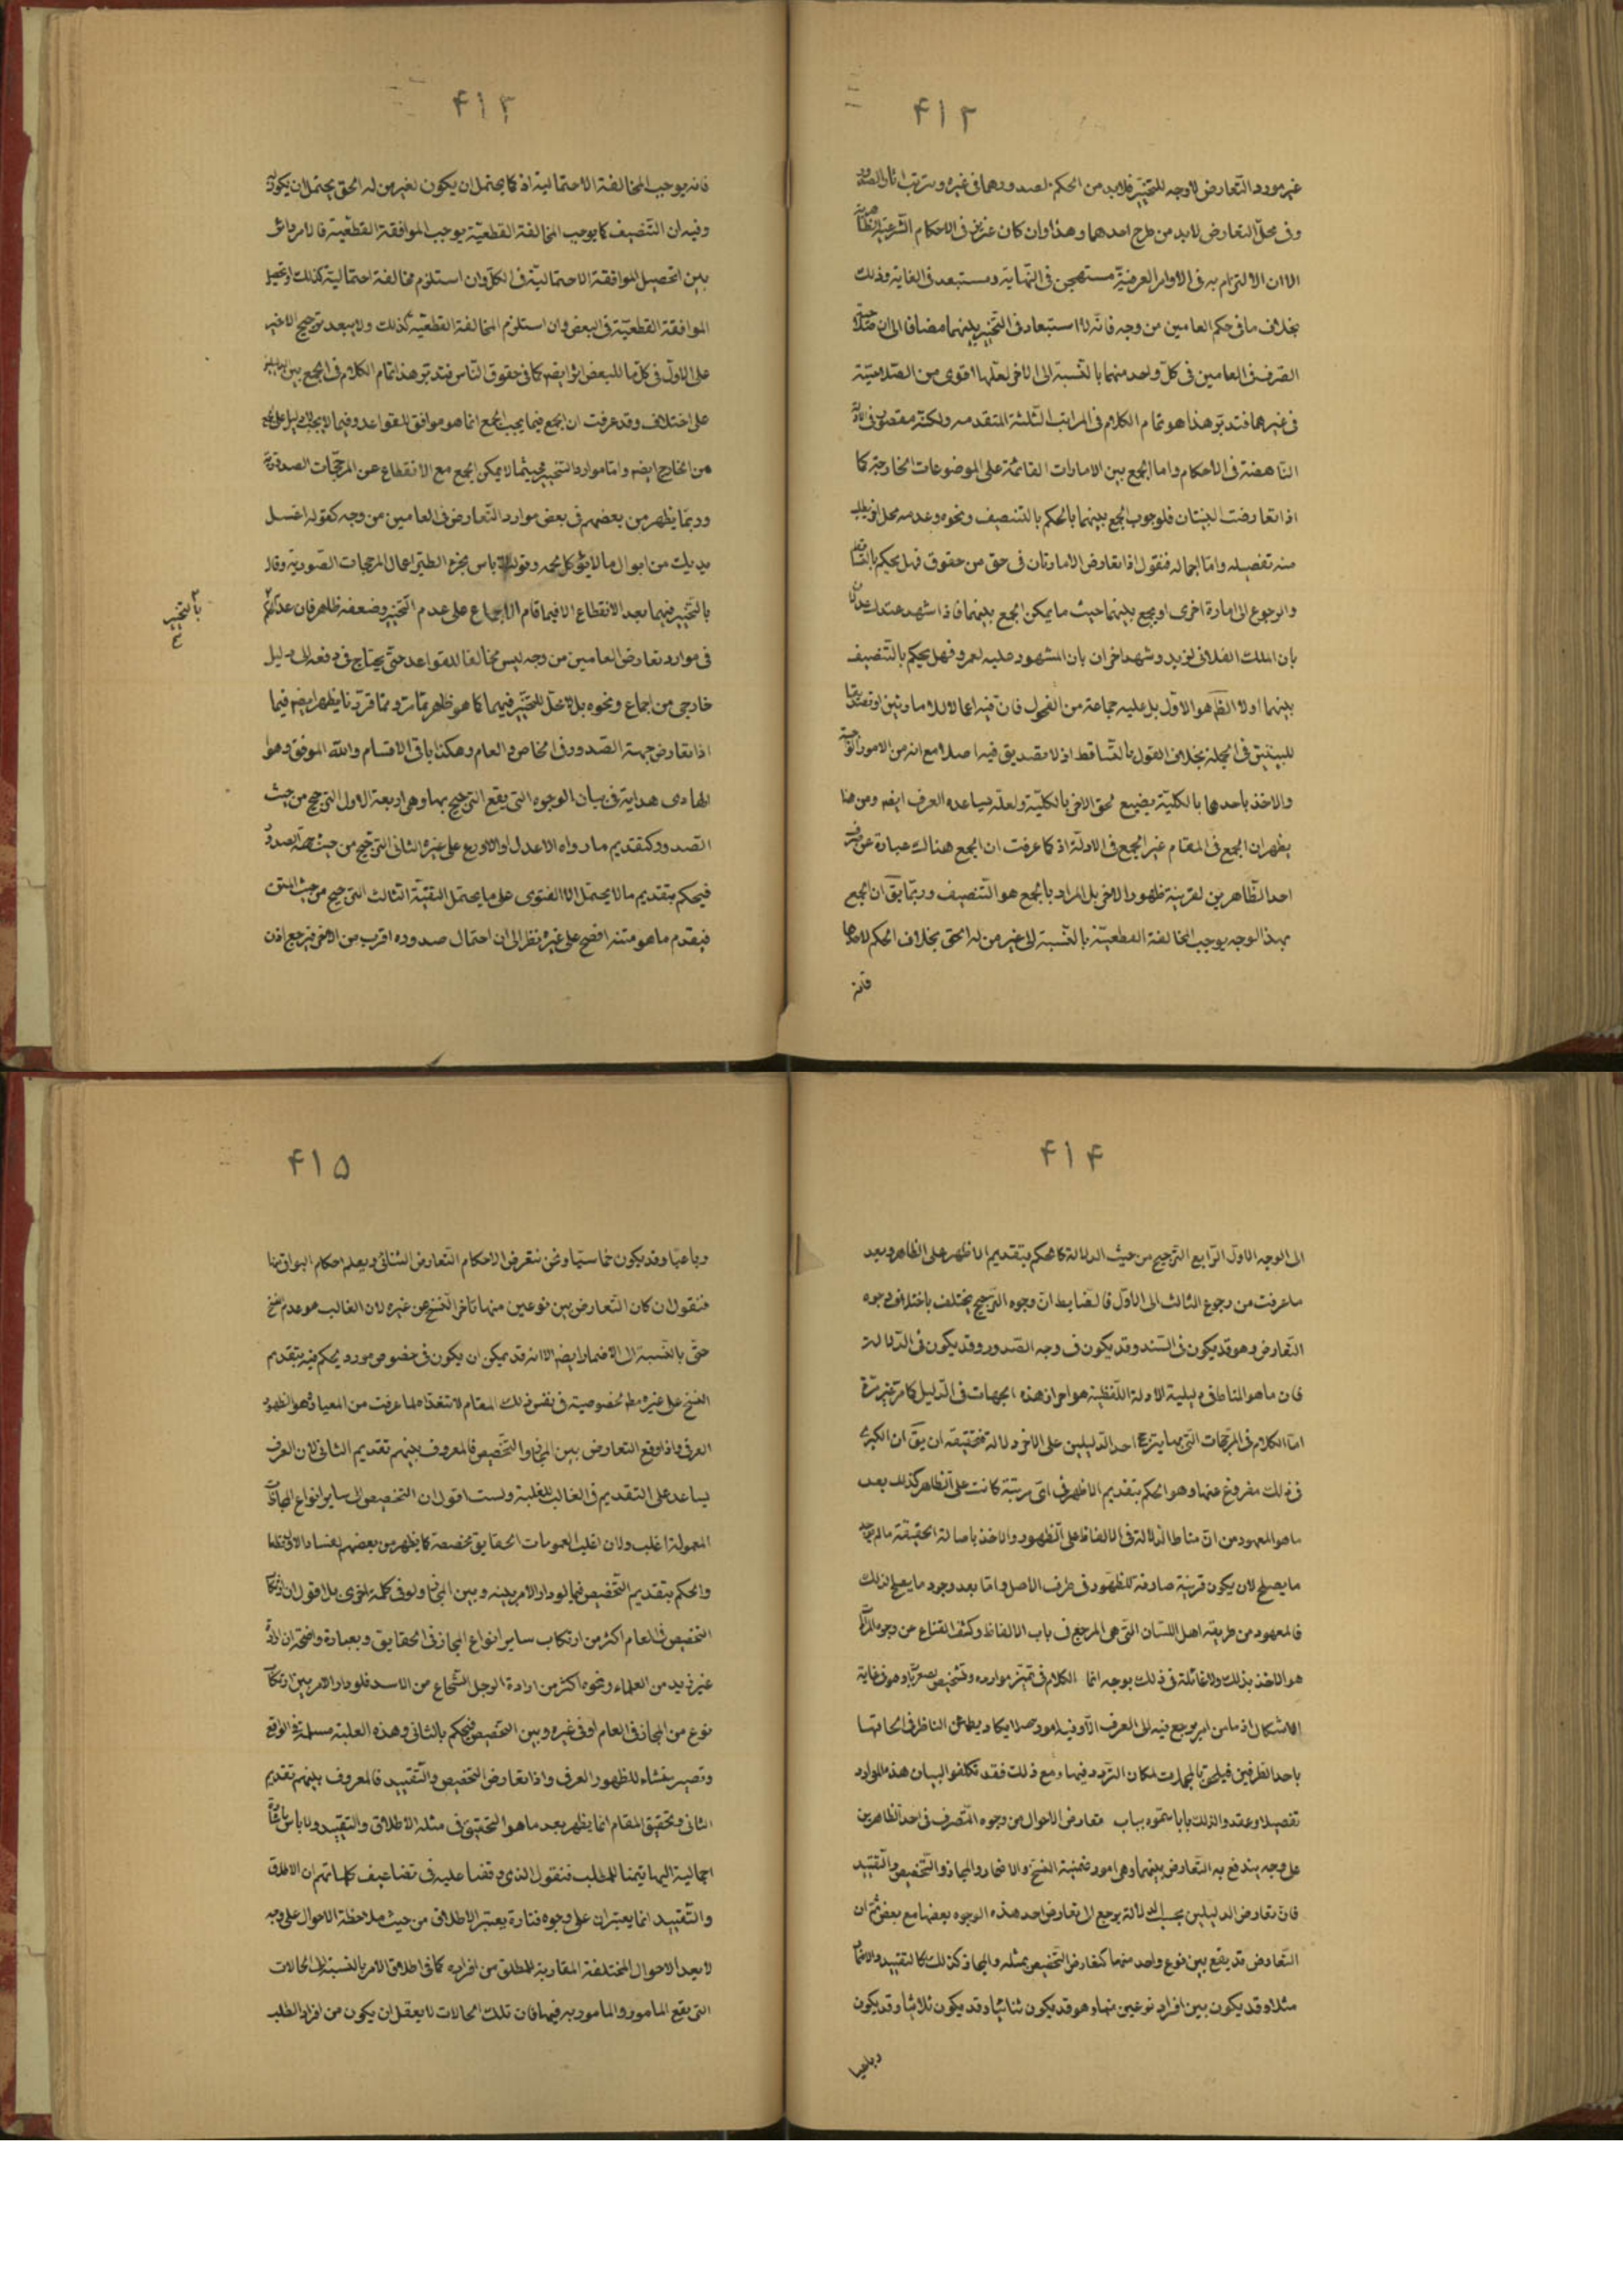 ۴۱۲
غير مورد التعارض لا وجه للتخيير فلا بد من الحكم بصدورهما فى غيره وترتب اثار الصدور
وفى محل التعارض لا بد من طرح احدهما وهذا وان كان عزيز فى الاحكام الشرعية
الا ان الالتزام به فى الاوامر العرفية مستهجن فى النهاية ومستبعد فى الغاية وذلك
بخلاف ما فى حكم العامين من وجه فانه لا استبعاد فى التخيير بينهما مضافا الى ان
الصرف فى العامين فى كل واحد منهما بالنسبة الى الاخر لعلها اقوى من الصلاحية
فى غيرهما فتدبر هذا هو تمام الكلام فى المراتب الثلثة المتقدمه ولكنه مقصور فى
الناهضة فى الاحكام واما الجمع بين الامارات القائمة على الموضوعات الخارجية كما
اذا تعارضت البينتان فلوجوب الجمع بينهما بالحكم بالتنصيف ونحوه وعدمه محل اخر يطلب
منه تفصيله واما اجماله فنقول اذا تعارض الامارتان فى حق من حقوق فهل يحكم
والرجوع الى امارة اخرى او يجمع بينهما حيث ما يمكن الجمع بينهما فاذا شهد عندك عدلان
بان الملك الفلانى لزيد وشهد اخران بان المشهود عليه لعمرو فهل يحكم بالتنصيف
بينهما اولا الظ هو الاول بل عليه جماعة من الفحول فان فيه اعمالا للامارتين او تصديقا
للبينتين فى الجملة بخلاف القول بالتساقط اذ لا تصديق فيه اصلا مع انه من الامور
والاخذ باحدهما بالكلية يضيع لحق الاخر بالكلية ولعله يساعده العرف ايضه ومن هنا
يظهر ان الجمع فى المقام غير الجمع فى الادلة اذ كما عرفت ان الجمع هناك عبارة عن صرف
احد الظاهرين لقرينة ظهور الاخر بل المراد بالجمع هو التنصيف وربما يق ان الجمع
بهذا الوجه يوجب المخالفة القطعية بالنسبة الى غير من له الحق بخلاف الحكم لاحدهما
فانه
۴۱۳
فانه يوجب المخالفة الاحتمالية اذ كما يحتمل ان يكون لغير من له الحق يحتمل ان يكون
وفيه ان التنصيف كما يوجب المخالفة القطعية يوجب الموافقة القطعية فالامر دائر
بين تحصيل الموافقة الاحتمالية فى الكل وان استلزم مخالفة احتمالية كذلك او تحصيل
الموافقة القطعية فى البعض وان استلزم المخالفة القطعية كذلك ولا يبعد ترجيح الاخير
على الاول فى كل ما للبعض اثر ايضه كما فى حقوق الناس فتدبر هذا تمام الكلام فى الجمع بين
على اختلاف وقد عرفت ان الجمع فيما يجب الجمع انما هو موافق للقواعد وفيما لا يجب لا دليل على
من الخارج ايضه واما موارد التخيير فحيثما لا يمكن الجمع مع الانقطاع عن المرجحات الصدورية
وربما يظهر من بعضهم فى بعض موارد التعارض فى العامين من وجه كقوله اغسل
يديك من ابوال ما لا يؤكل لحمه وقوله لا باس بخرء الطير اعمال المرجحات الصدورية وقال
بالتخيير فيهما بعد الانقطاع الا فيما قام الاجماع على عدم التخيير وضعفه ظاهر فان عدم
بالتخيير
فى موارد تعارض العامين من وجه ليس مخالفا للقواعد حتى يحتاج فى دفعه الى دليل
خارجى من اجماع ونحوه بل لا محل للتخيير فيهما كما هو ظاهر مما مر ومما قررنا يظهر ايضه فيما
اذا تعارض جهة الصدور فى الخاص والعام وهكذا باقى الاقسام والله الموفق وهو
الهادى هداية فى بيان الوجوه التى يقع الترجيح بها وهى اربعة الاول الترجيح من حيث
الصدور كتقديم ما رواه الاعدل او الاورع على غيره الثانى الترجيح من حيث جهة الصدور
فيحكم بتقديم ما لا يحتمل الا الفتوى على ما يحتمل التقية الثالث الترجيح من حيث المتن
فيقدم ما هو متنه افصح على غيره نظر الى ان احتمال صدوره اقرب من الاخر فيرجع اذن
۴۱۴
الى الوجه الاول الرابع الترجيح من حيث الدلالة كالحكم بتقديم الاظهر على الظاهر وبعد
ما عرفت من رجوع الثالث الى الاول فالضابط ان وجوه الترجيح يختلف باختلاف وجوه
التعارض وهو قد يكون فى السند وقد يكون فى وجه الصدور وقد يكون فى الدلالة
فان ما هو المناط فى دليلية الادلة اللفظية هو احراز هذه الجهات فى الدليل كما مر غير مرة
اما الكلام فى المرجحات التى بها يترجح احد الدليلين على الاخر دلالة فتحقيقه ان يق ان الكبرى
فى ذلك مفروغ عنها وهو الحكم بتقديم الاظهر فى اى مرتبة كانت على الظاهر كذلك بعد
ما هو المعهود من ان مناط الدلالة فى الالفاظ على الظهور والاخذ باصالة الحقيقة ما لم يوجد
ما يصلح لان يكون قرينة صارفة للظهور فى طرف الاصل واما بعد وجود ما يصلح لذلك
فالمعهود من طريقة اهل اللسان التى هى المرجع فى باب الالفاظ وكشف القناع عن وجوه المراد
هو الاخذ بذلك ولا غائلة فى ذلك بوجه انما الكلام فى تميز موارده وتشخيص صغرياته وهو فى غاية
الاشكال اذ ما من امر يرجع فيه الى العرف الا وفيه امور لا يكاد يطمئن الناظر فى الحاقها
باحد الطرفين فيلحق بالمجملات لمكان التردد فيها ومع ذلك فقد تكلفوا لبيان هذه الموارد
تفصيلا وعقدوا لذلك بابا سموه بباب تعارض الاحوال من وجوه التصرف فى احد الظاهرين
على وجه يندفع به التعارض بينهما وهى امور خمسة النسخ والاضمار والمجاز والتخصيص والتقييد
فان تعارض الدليلين بحسب الدلالة يرجع الى تعارض احد هذه الوجوه بعضها مع بعض ثم ان
التعارض قد يقع بين نوع واحد منهما كتعارض التخصيص بمثله والمجاز كذلك كالتقييد والاضمار
مثلا وقد يكون بين افراد نوعين منها وهو قد يكون ثنائيا وقد يكون ثلاثيا وقد يكون
رباعيا
۴۱۵
رباعيا وقد يكون خماسيا ونحن نتعرض لاحكام التعارض الثنائى ويعلم احكام البواقى منها
فنقول ان كان التعارض بين نوعين منها تاخر النسخ عن غيره لان الغالب هو عدم النسخ
حتى بالنسبة الى الاضمار ايضه الا انه قد يمكن ان يكون فى خصوص مورد يحكم فيه بتقديم
النسخ على غيره مط لخصوصية فى نفس ذلك المقام لا نتعداه لما عرفت من المعيار هو الظهور
العرفى واذا وقع التعارض بين المجاز والتخصيص فالمعروف بينهم تقديم الثانى لان العرف
يساعد على التقديم فى الغالب للغلبة ولست اقول ان التخصيص الى ساير انواع المجازات
المعمولة اغلب ولان اغلب العمومات الحقايق مخصصة كما يظهر من بعضهم لفساد الاول قطعا
والحكم بتقديم التخصيص فيما لو دار الامر بينه وبين المجاز ولو فى كلمة اخرى بل اقول ان ارتكاب
التخصيص فى العام اكثر من ارتكاب ساير انواع المجاز فى الحقايق وبعبارة واضحة ان ارادة
غير زيد من العلماء ونحوه اكثر من ارادة الرجل الشجاع من الاسد فلو دار الامر بين ارتكاب
نوع من المجاز فى العام او فى غيره وبين التخصيص فيحكم بالثانى وهذه الغلبة مسلمة فى الواقع
وتصير منشاء للظهور العرفى واذا تعارض التخصيص والتقييد فالمعروف بينهم تقديم
الثانى وتحقيق المقام انما يظهر بعد ما هو التحقيق فى مثله الاطلاق والتقييد ولا باس باشارة
اجمالية اليها تيمنا للمطلب فنقول الذى وقفنا عليه فى تضاعيف كلماتهم ان الاطلاق
والتقييد انما يعتبران على وجوه فتارة يعتبر الاطلاق من حيث ملاحظة الاحوال على وجه
لا يعد الاحوال المختلفة المقارنة للمطلق من افراده كما فى اطلاق الامر بالنسبة الى الحالات
التى يقع المامور والمامور به فيها فان تلك الحالات لا يعقل ان يكون من افراد الطلب